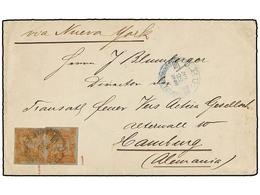 via Nueva York
Herrn J Blumberger
Director der
Transatl. feuer Vers Actien Gesellsch.
alterwall 10
Hamburg
(Alemania)